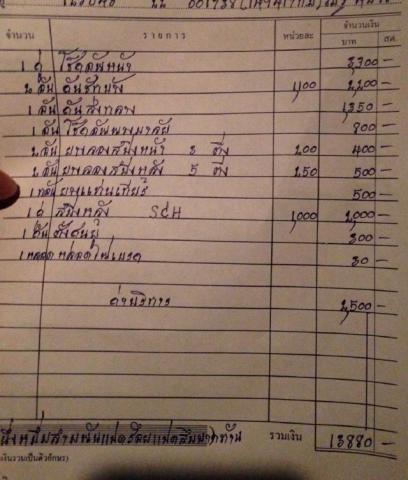 จำนวน รายการ หน่วยละ จำนวนเงิน
บาท สต.
1 คู่ โช๊คอัพหน้า 3,300 -
2 อัน คันชักบัง 1,100 2,200 -
1 อัน คันส่งกลาง 1,350 -
1 อัน โช๊คอัพพวงมาลัย 800 -
2 อัน ยางรองสปริงหน้า 3 ติ่ง 200 400 -
2 อัน ยางรองสปริงหลัง 5 ติ่ง 250 500 -
1 ยางแท่นเกียร์ 500 -
1 คู่ สปริงหลัง SCH 1,000 2,000 -
1 300 -
1 หลอด หลอดไฟเบรค 30 -
ค่าบริการ 2,500 -
หนึ่งหมื่นสามพันแปดร้อยแปดสิบบาทถ้วน รวมเงิน 13880 -
เงินรวมเป็นตัวอักษร)